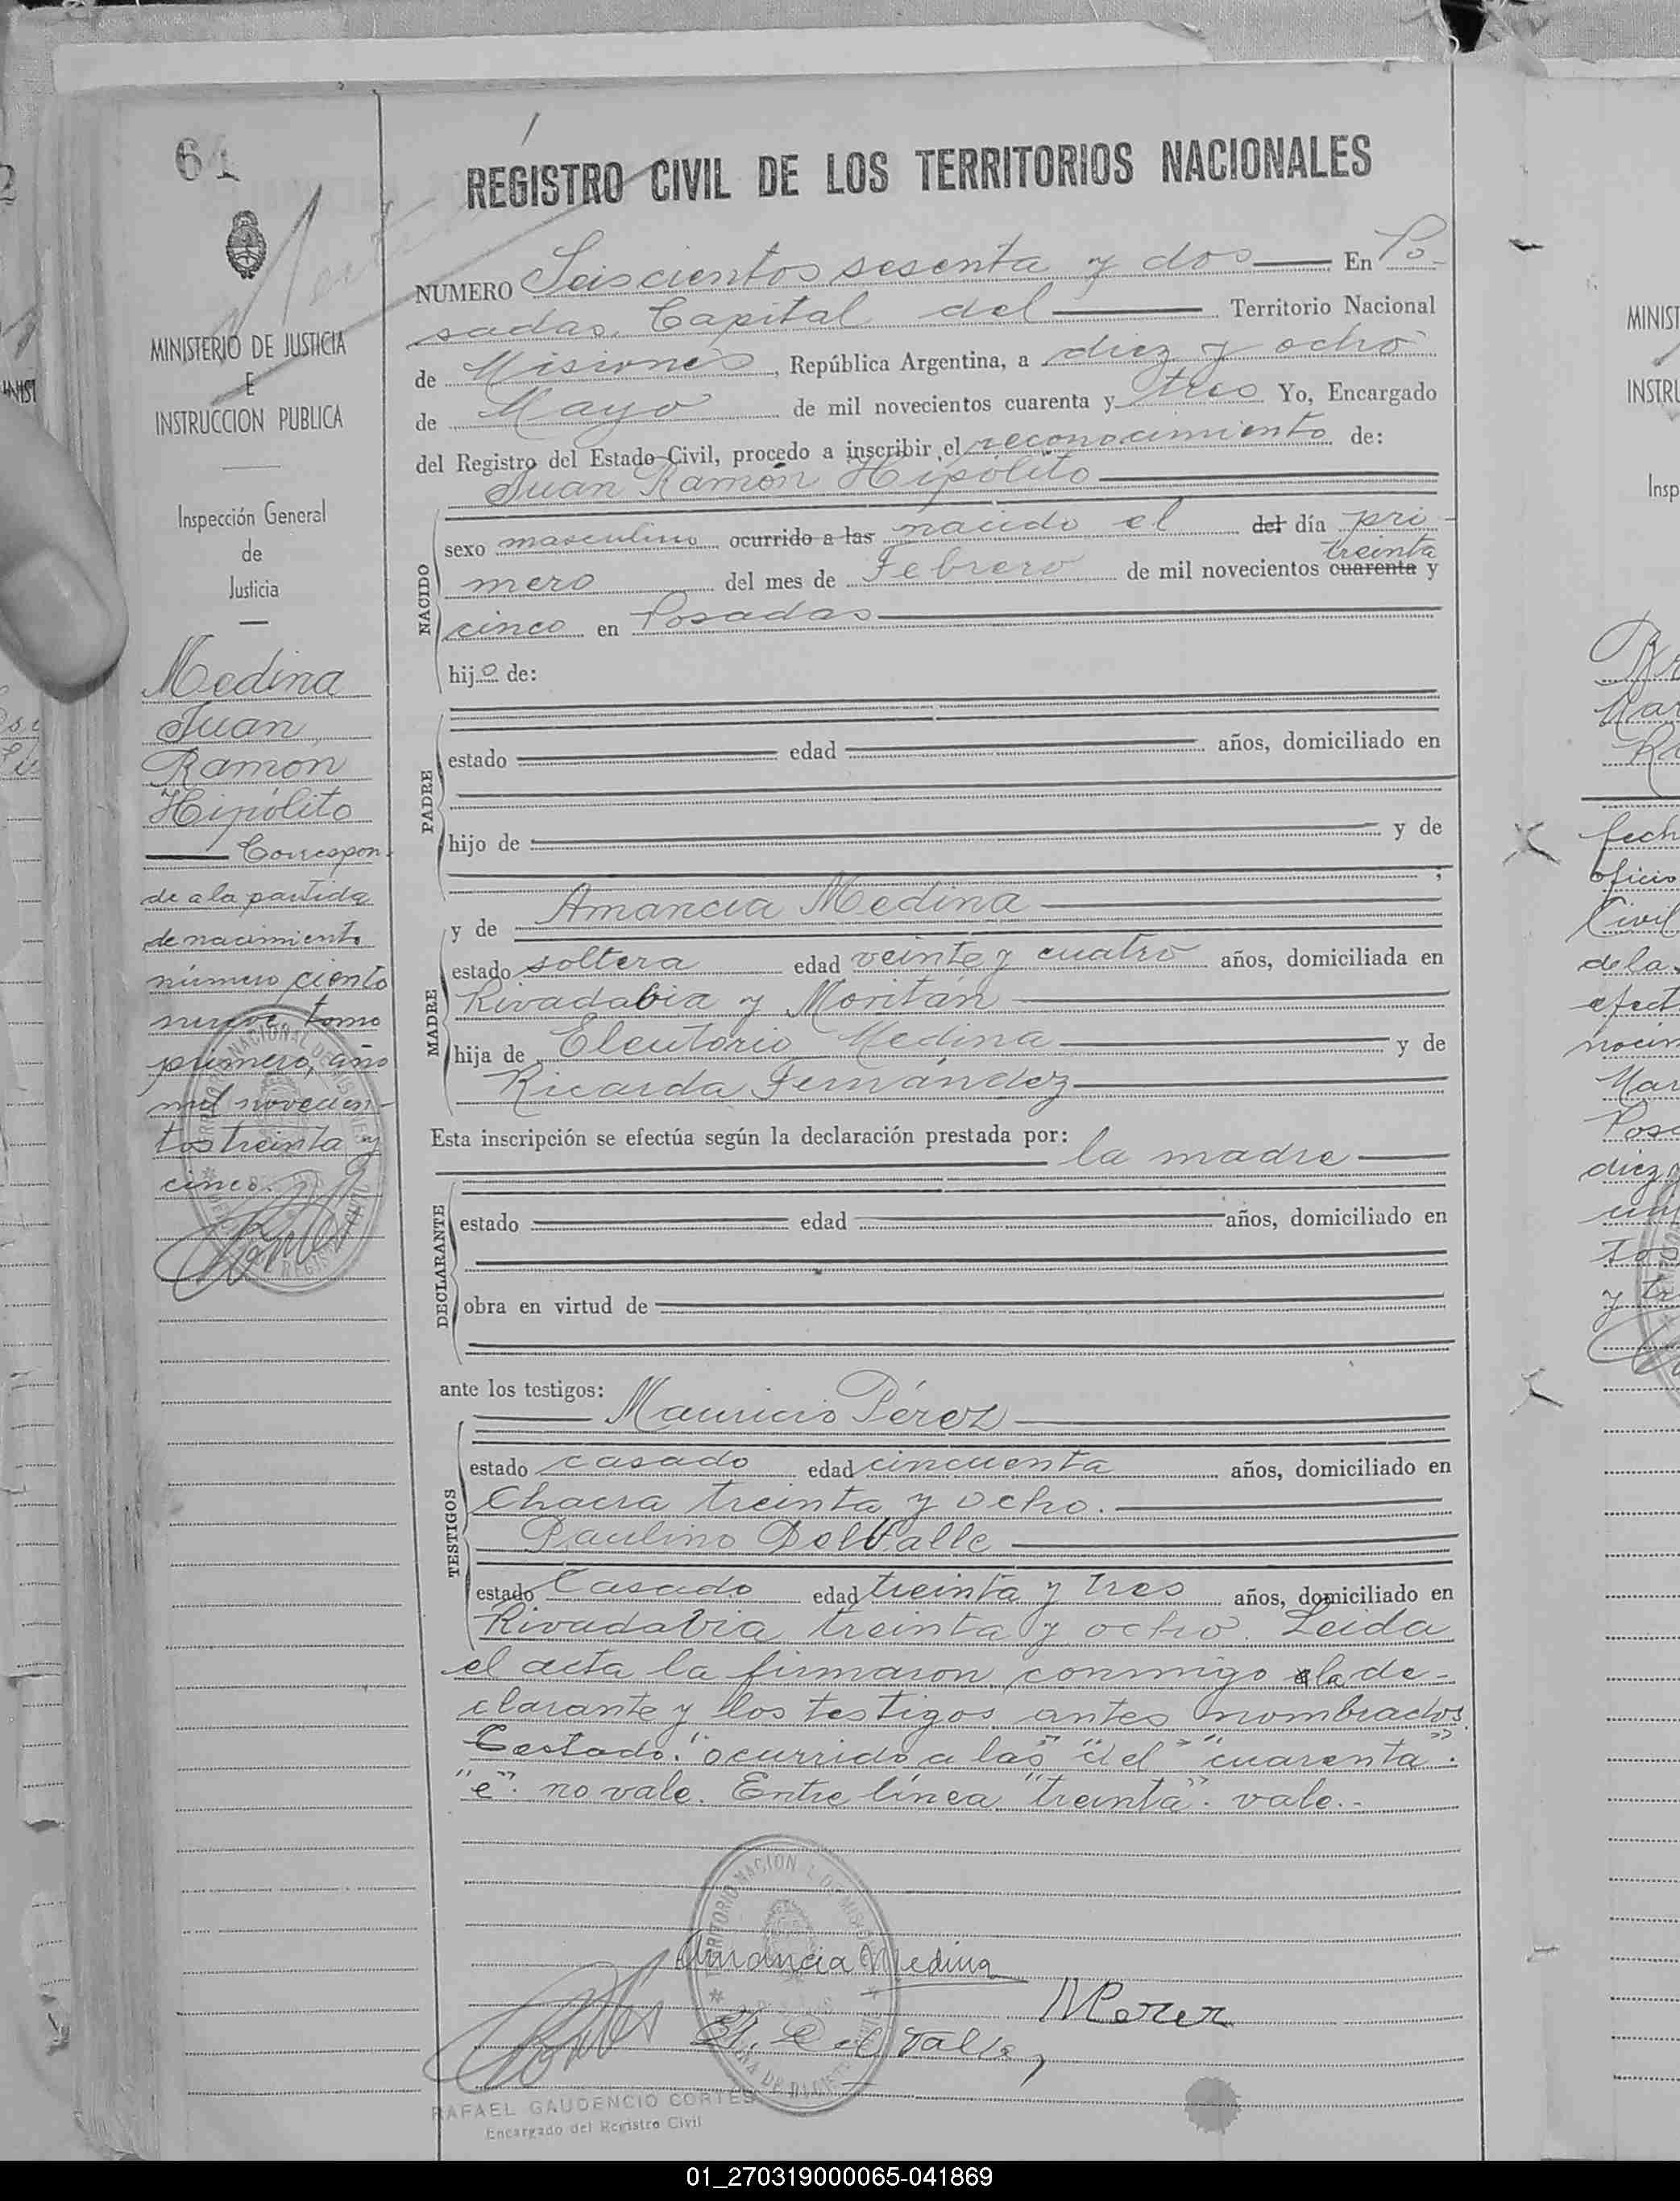 61
REGISTRO CIVIL DE LOS TERRITORIOS NACIONALES
MINISTERIO DE JUSTICIA
E
INSTRUCCION PUBLICA
Inspección General
de
Justicia
Medina
Juan
Ramón
Hipólito
Correspon-
de a la partida
de nacimiento
número ciento
nueve, tomo
primero, año
mil novecien-
tos treinta y
cinco.
NUMERO Seiscientos sesenta y dos En Po-
sadas, Capital del Territorio Nacional
de Misiones, República Argentina, a diez y ocho
de Mayo de mil novecientos cuarenta y tres Yo, Encargado
del Registro del Estado Civil, procedo a inscribir el reconocimiento de:
Juan Ramón Hipólito
NACIDO
sexo masculino ocurrido a las nacido el del día pri-
treinta
mero del mes de Febrero de mil novecientos cuarenta y
cinco en Posadas
hijo de:
PADRE
estado edad años, domiciliado en
hijo de y de
;
MADRE
y de Amancia Medina
estado soltera edad veinte y cuatro años, domiciliada en
Rivadabia y Moritán
hija de Eleutorio Medina y de
Ricarda Fernández
Esta inscripción se efectúa según la declaración prestada por:
la madre
DECLARANTE
estado edad años, domiciliado en
obra en virtud de
ante los testigos:
TESTIGOS
Mauricio Pérez
estado casado edad cincuenta años, domiciliado en
Chacra treinta y ocho.
Paulino DelValle
estado Casado edad treinta y tres años, domiciliado en
Rivadabia treinta y ocho. Leida
el acta la firmaron conmigo la de-
clarante y los testigos antes nombrados.
Testado: "ocurrido a las" "del" "cuarenta".
"e". no vale. Entre línea "treinta". vale.-
Amancia Medina
MPerez
RAFAEL GAUDENCIO CORTES
Encargado del Registro Civil
01_270319000065-041869